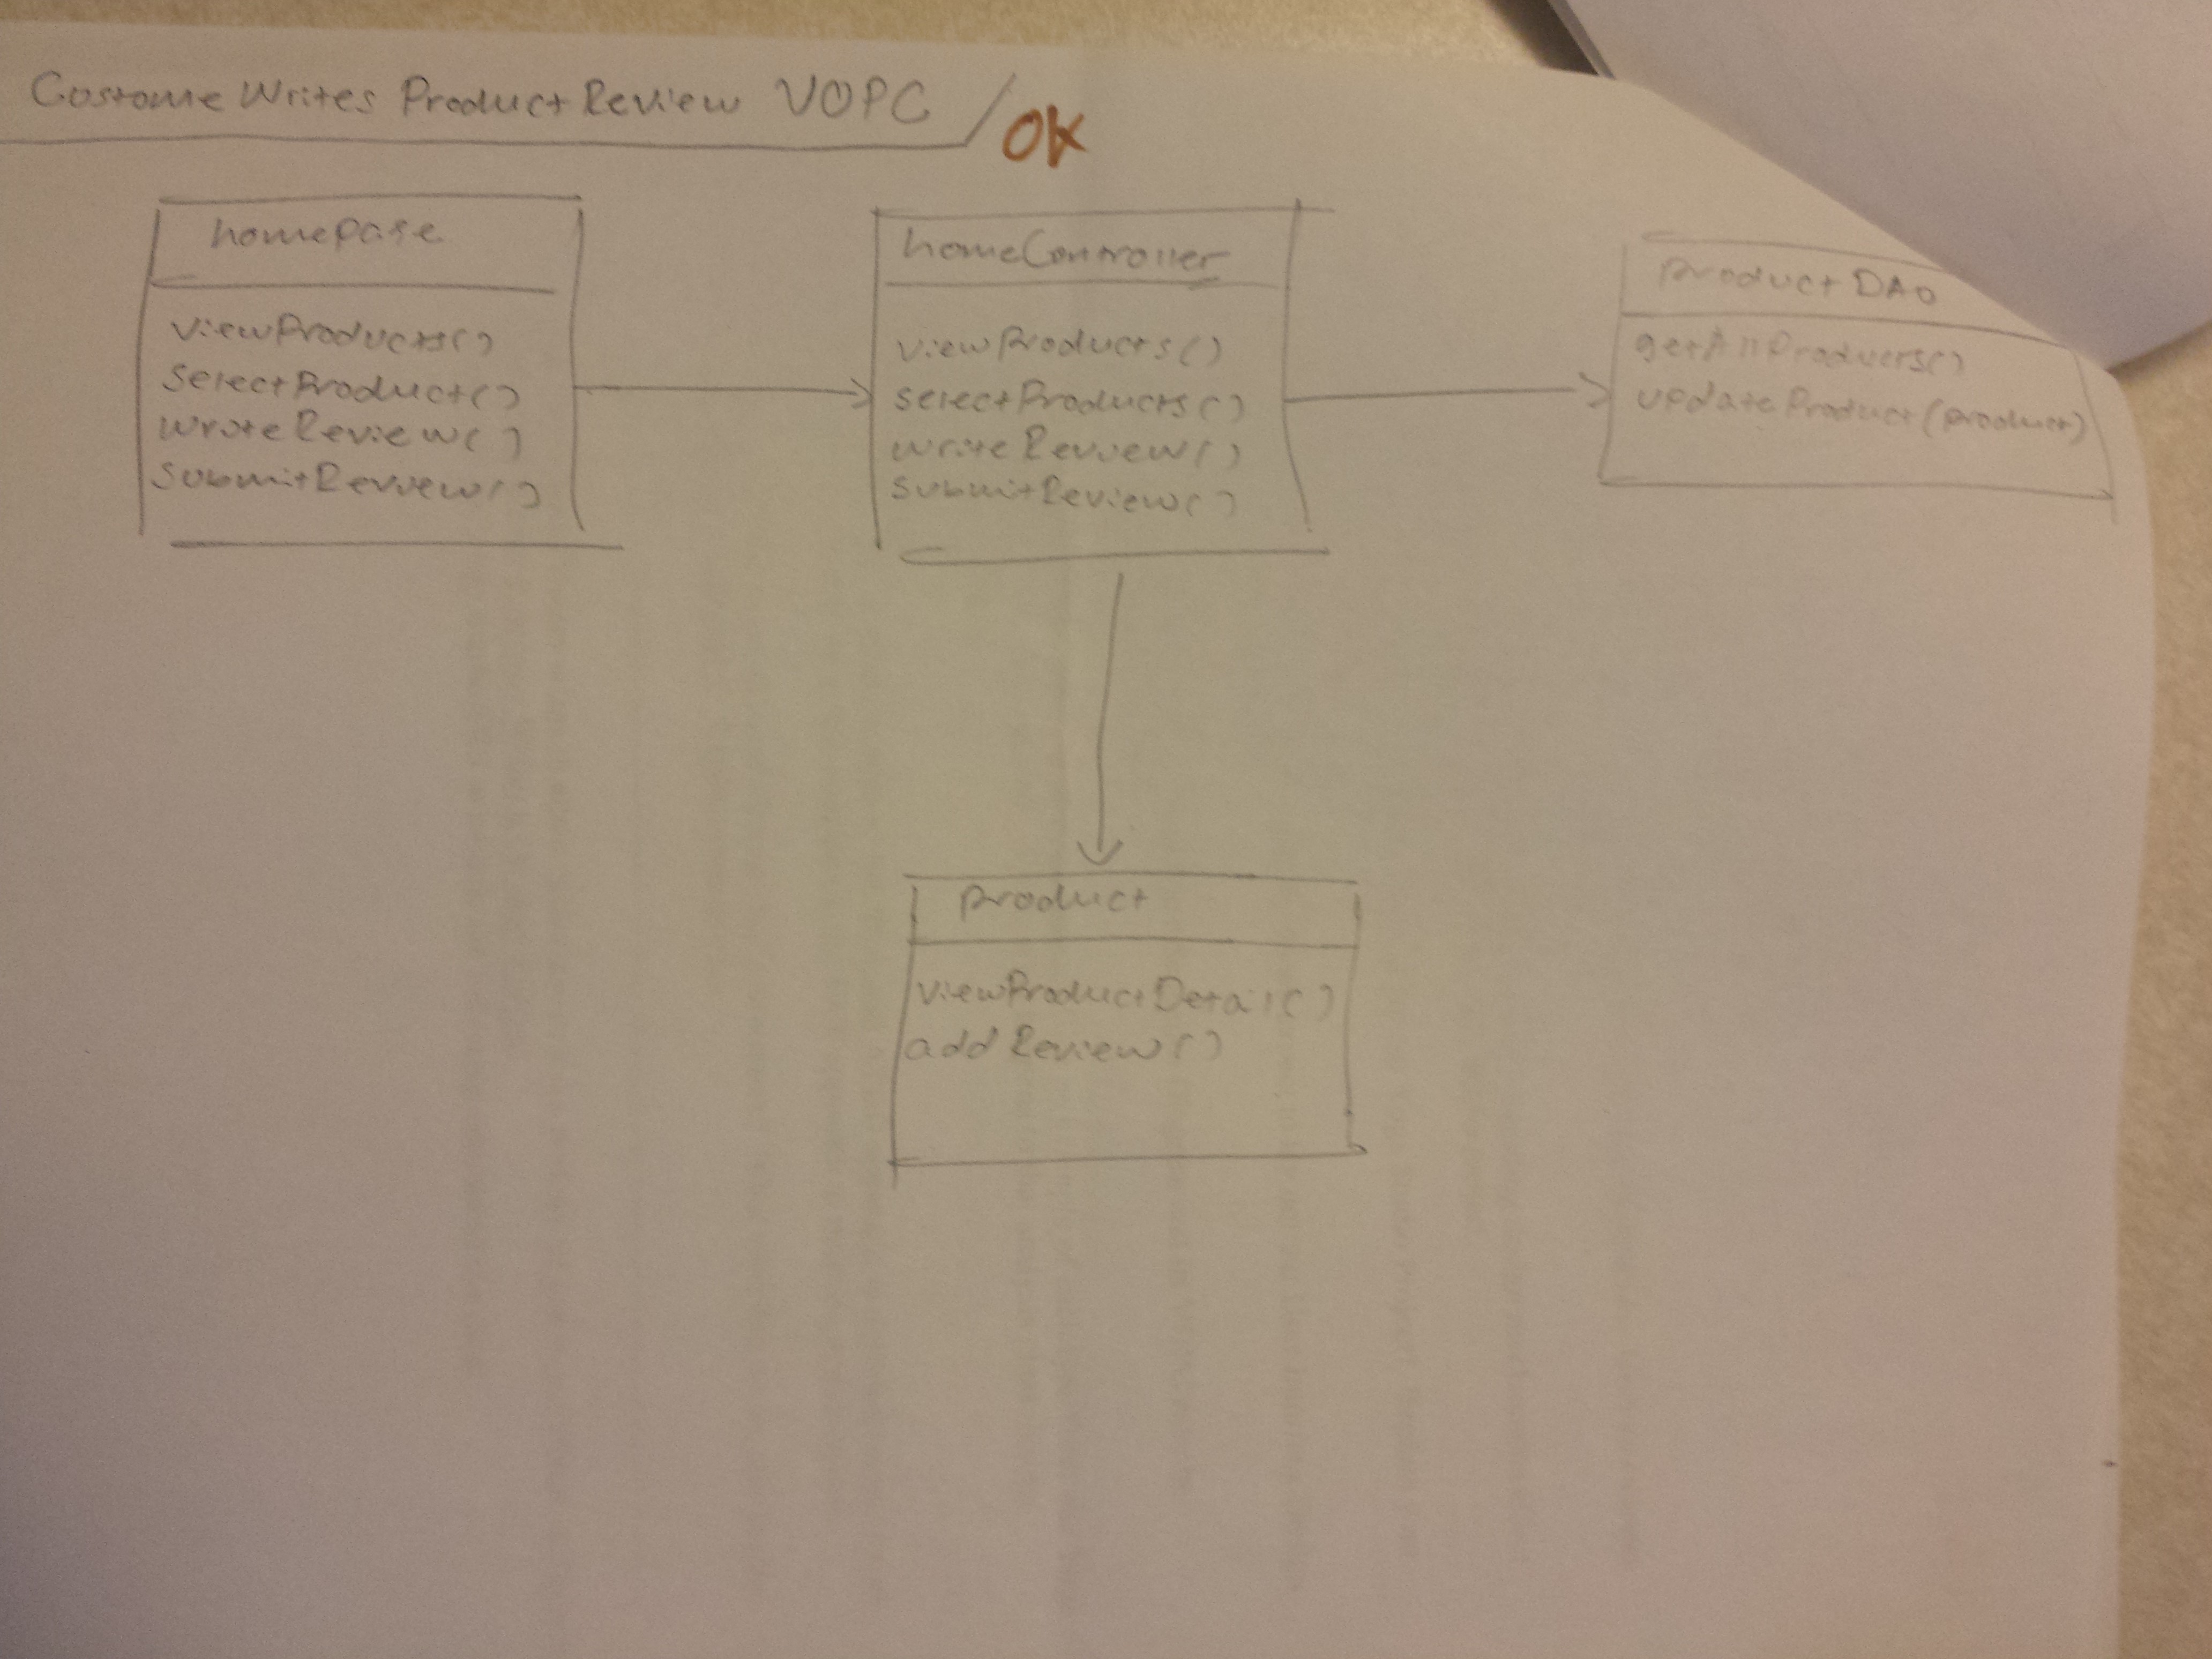 Custome Writes Product Review VOPC
OK
homePage
viewProducts()
selectProduct()
wroteReview()
submitReview()
homeController
viewProducts()
selectProducts()
writeReview()
submitReview()
productDAO
getAllProducts()
updateProduct(product)
product
viewProductDetail()
addReview()